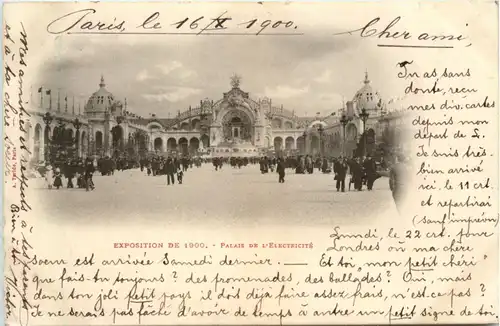 Paris, le 16/X 1900.
Cher ami,
Tu as sans
doute, reçu
mes div. cartes
depuis mon
départ de L.
Je suis très
arrivé
ici le 11 crt
et repartirai
(sauf imprévu)
Lundi, le 22 crt. pour
Londres où ma chère
EXPOSITION DE 1900. - PALAIS DE L'ÉLECTRICITÉ
soeur est arrivée Samedi dernier. — Et toi, mon "petit chéri"
que fais-tu toujours? des promenades, des ballades? Oui, mais
dans ton joli petit pays il doit déjà faire assez frais, n'est-ce pas?
Je ne serais pas fâché d'avoir de temps à autre un petit signe de toi.
Mes
et à